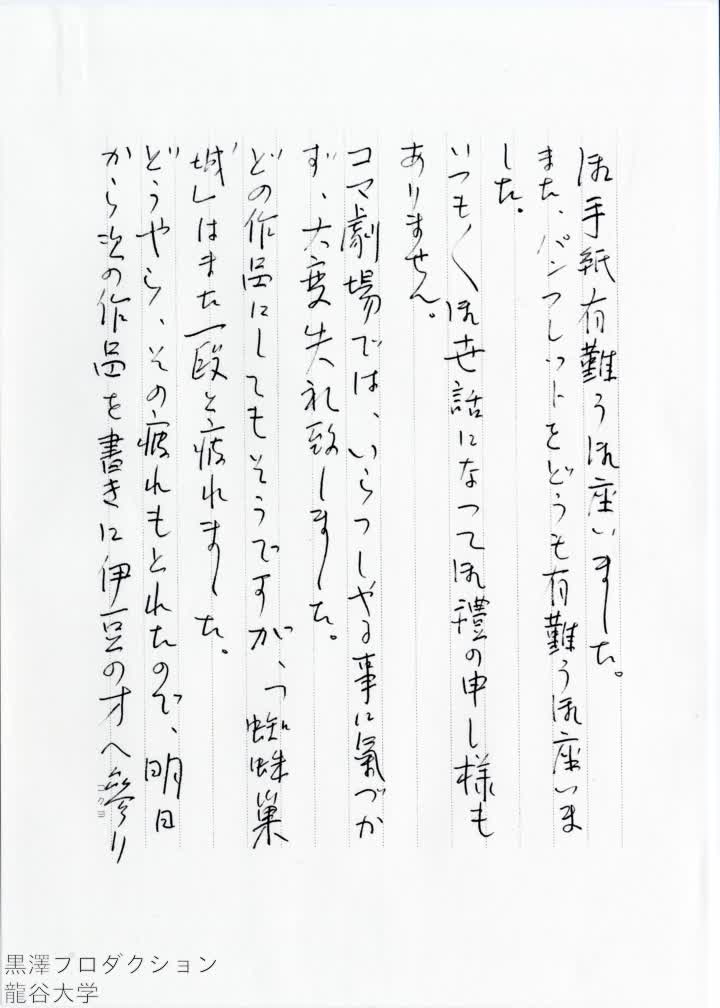 御手紙有難う御座いました。
また、パンフレットをどうも有難う御座いま
した。
いつも〱御世話になつて御禮の申し様も
ありません。
コマ劇場では、いらつしやる事に氣づか
ず、大変失礼致しました。
どの作品にしてもそうですが、「蜘蛛巣
城」はまた一段と疲れました。
どうやら、その疲れもとれたので、明日
から次の作品を書きに伊豆の方へ参り
コクヨ
黒澤プロダクション
龍谷大学